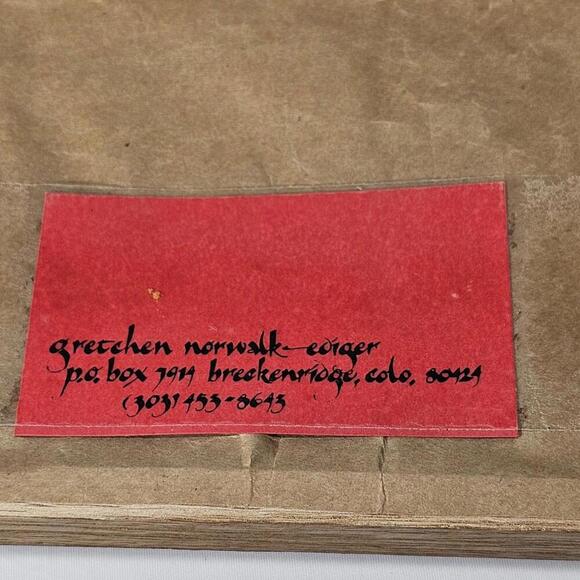 gretchen norwalk-ediger
p.o. box 1914 breckenridge, colo. 80424
(303) 453-8645